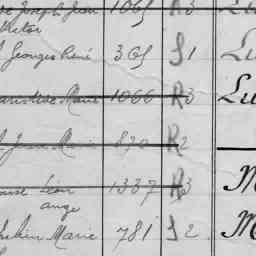 Joseph Jean 1065 R3 Lu
Victor
Georges René 365 S1 Lu
Marie 1066 R3 Lu
Jean Marie 870 R2
Léon 1337 R3 M
ange
Marie 781 S2 M